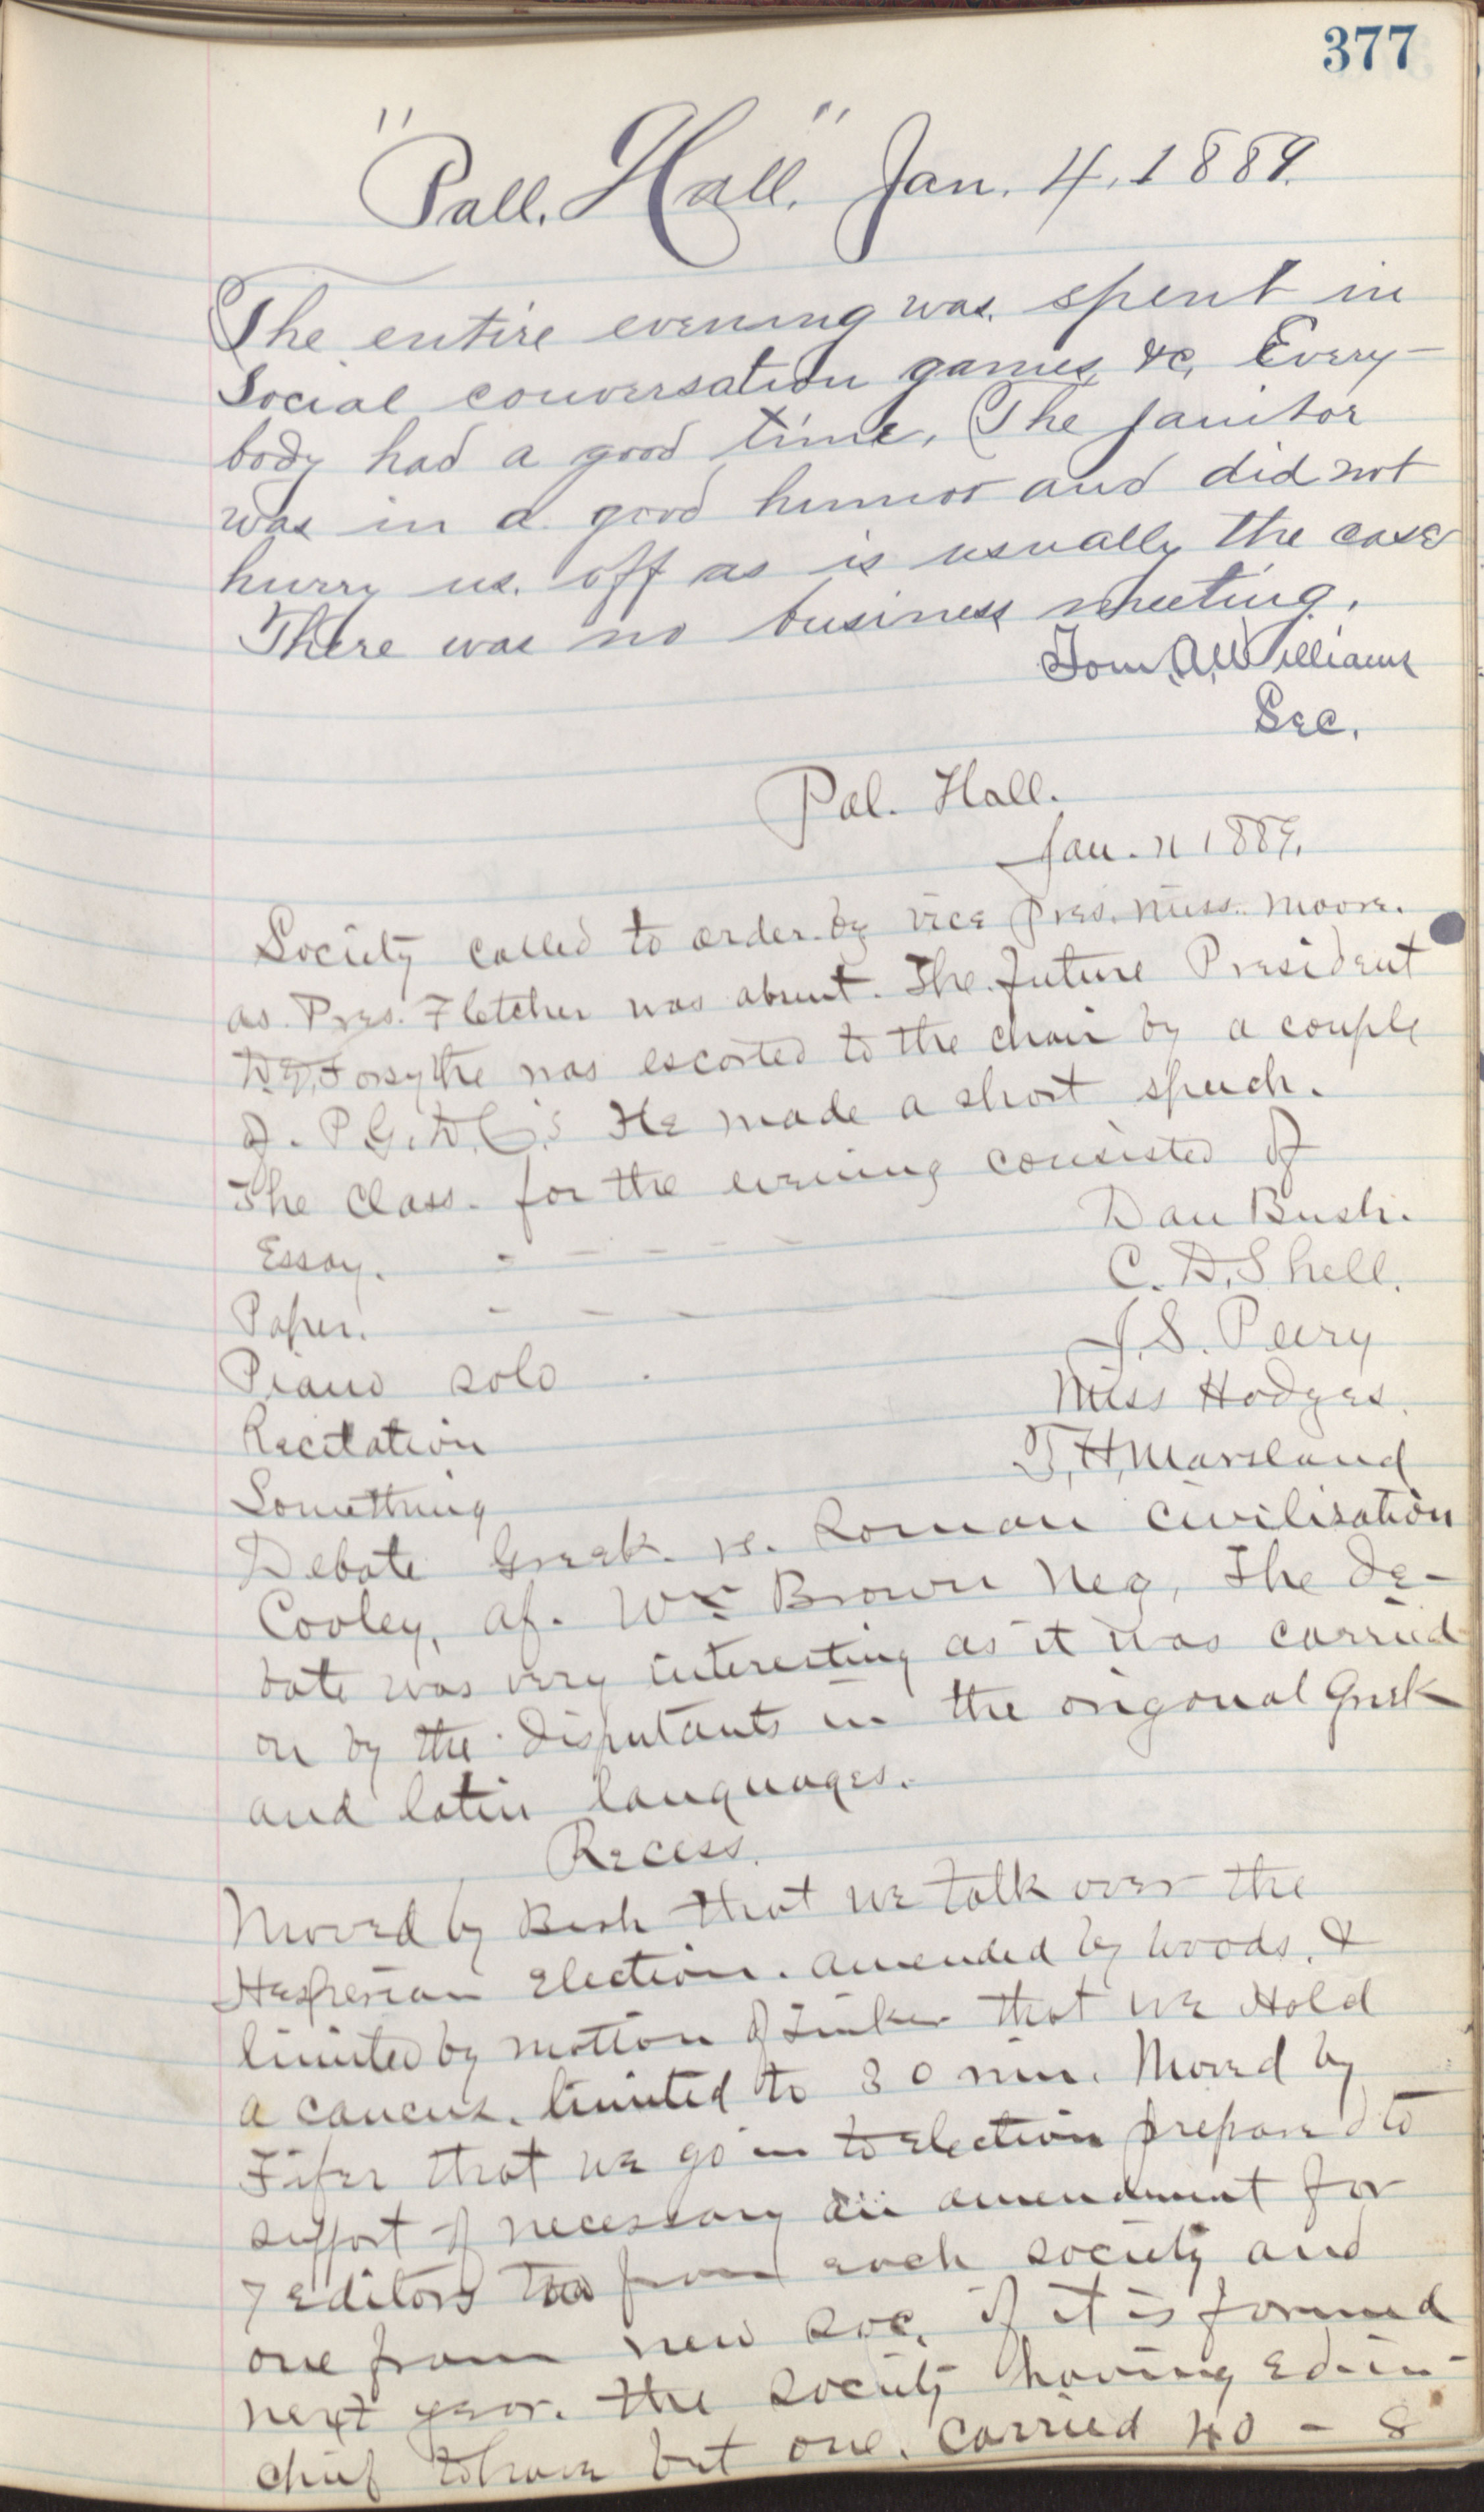 377
"Pall. Hall." Jan. 4, 1889.
The entire evening was spent in
Social conversation games, &c, Every-
body had a good time, The janitor
was in a good humor and did not
hurry us. off as is usually the case
There was no business meeting.
Tom. A. Williams
Sec.
Pal. Hall.
Jan. 11 1889.
Society called to order by vice Pres. Miss. Moore.
as Pres. Fletcher was absent. The future President
D.D. Forsythe was escorted to the chair by a couple
of P.G.D.C.'s He made a short speech.
The class for the evening consisted of
Essay. - - - - - Dan Bush.
Paper. - - - - C. D. Shell.
Piano solo . J. S. Peery
Recitation Miss Hodges.
Something T. H. Marsland
Debate Greek vs. Roman civilisation
Cooley, af. Wm Brown Neg, The de-
bate was very interesting as it was carried
on by the disputants in the origonal Greek
and latin languages.
Recess.
Moved by Bush that we talk over the
Hesperian Election. amended by Woods. &
limited by motion of Tinker that we Hold
a caucus. limited to 30 min. Moved by
Fifer that we go in to election prepared to
support if necessary an amendment for
7 editors two from each society and
one from new soc. if it is formed
next year. the society having Ed-in-
chief to have but one. Carried 40 - 8